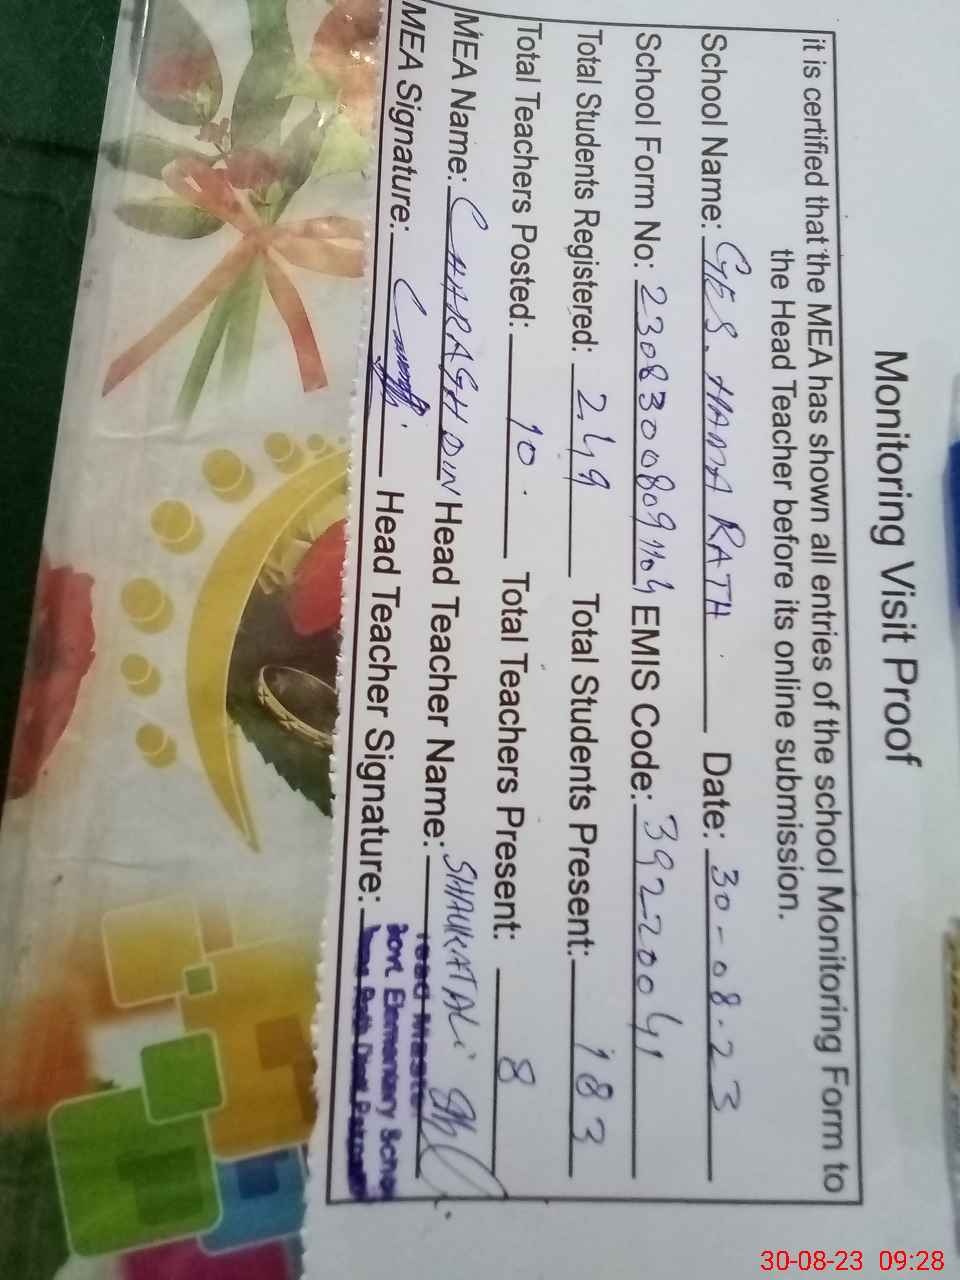 Monitoring Visit Proof
it is certified that the MEA has shown all entries of the school Monitoring Form to
the Head Teacher before its online submission.
School Name: GES. HAMA RATH Date: 30-08-23
School Form No: 2308300809 1104 EMIS Code: 39220041
Total Students Registered: 249 Total Students Present: 183
Total Teachers Posted: 10 Total Teachers Present: 8
MEA Name: CHARAGH DIN Head Teacher Name: SHAUKAT ALI
MEA Signature: Head Teacher Signature:
Head Master
Govt. Elementary School
30-08-23 09:28